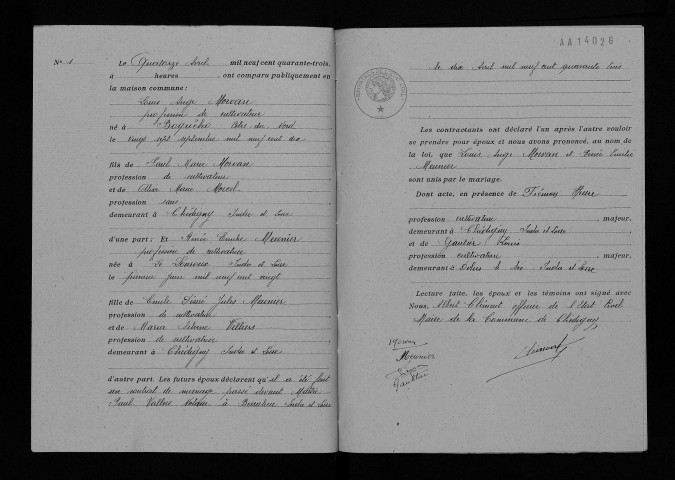 N° 1
Le Quatorze Avril mil neuf cent quarante-trois,
à heures, ont comparu publiquement en
la maison commune :
Louis Ange Morvan
profession de cultivateur
né à Boquého Côtes du Nord
le vingt sept septembre mil neuf cent dix
fils de Paul Marie Morvan
profession de cultivateur
et de Marie Morcel
profession sans
demeurant à Chédigny Indre et Loire
d'une part : Et Emilie Meunier
profession de cultivatrice
née à Le Indre et Loire
le premier juin mil neuf cent vingt
fille de Emile Jules Meunier
profession de cultivateur
et de Maria Villiers
profession de cultivatrice
demeurant à Chédigny Indre et Loire
d'autre part. Les futurs époux déclarent qu'il a été fait
un contrat de mariage passé devant Maître
Paul notaire à Indre et Loire
AA14026
le dix Avril mil neuf cent quarante trois
Les contractants ont déclaré l'un après l'autre vouloir
se prendre pour époux et nous avons prononcé, au nom de
la loi, que Louis Ange Morvan et Emilie
Meunier
sont unis par le mariage.
Dont acte, en présence de
profession cultivateur, majeur,
demeurant à Chédigny Indre et Loire
et de
profession cultivateur, majeur,
demeurant à Indre et Loire
Lecture faite, les époux et les témoins ont signé avec
Nous, Albert Clément officier de l'Etat Civil
Maire de la Commune de Chédigny
Morvan
Meunier
Clément